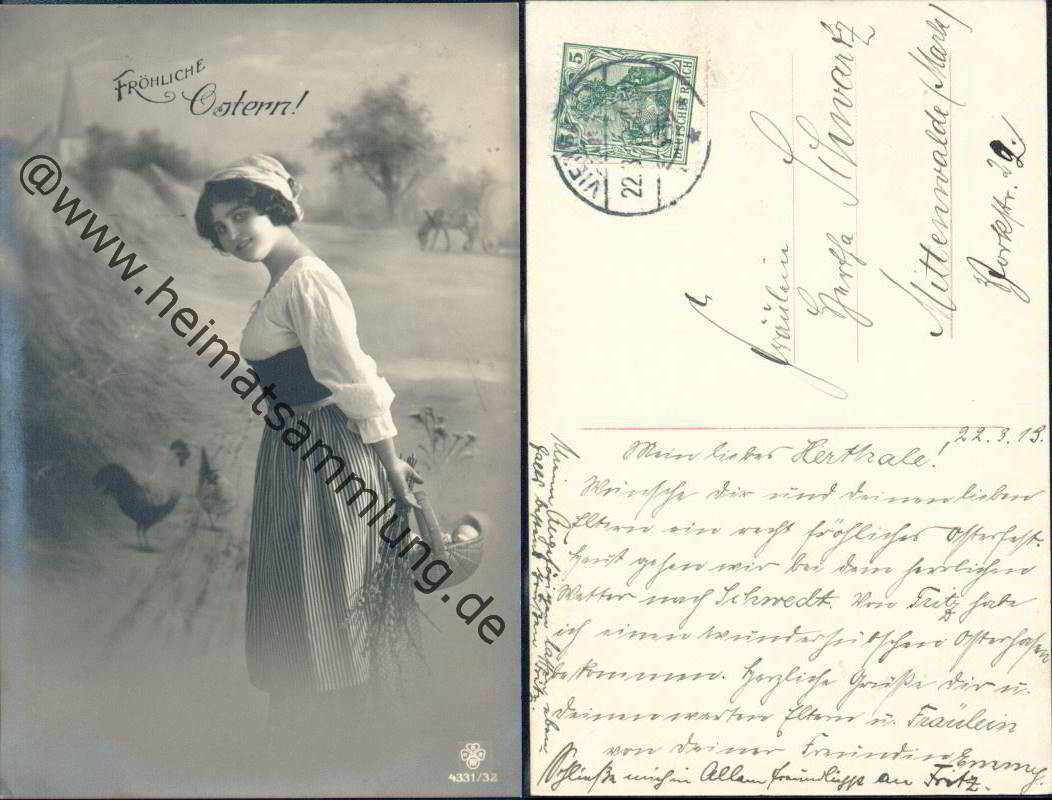 FRÖHLICHE
Ostern!
@www.heimatsammlung.de
4331/32
5 5
DEUTSCHES REICH
22.3
Fräulein
Hertha Schwartz
Mittenwalde (Mark)
Yorkstr. 29.
22.3.13.
Mein liebes Herthale!
Wünsche dir und deinen lieben
Eltern ein recht fröhliches Osterfest.
Heut gehen wir bei dem herrlichen
Wetter nach Schwedt. Von Fritz habe
ich einen wunderhübschen Osterhasen
bekommen. Herzliche Grüße dir u.
deinen werten Eltern u. Fräulein
von deiner Freundin Emmy.
Schließe mich in Allem freundlichst an Fritz.
Meine Angehörigen lassen eben
falls